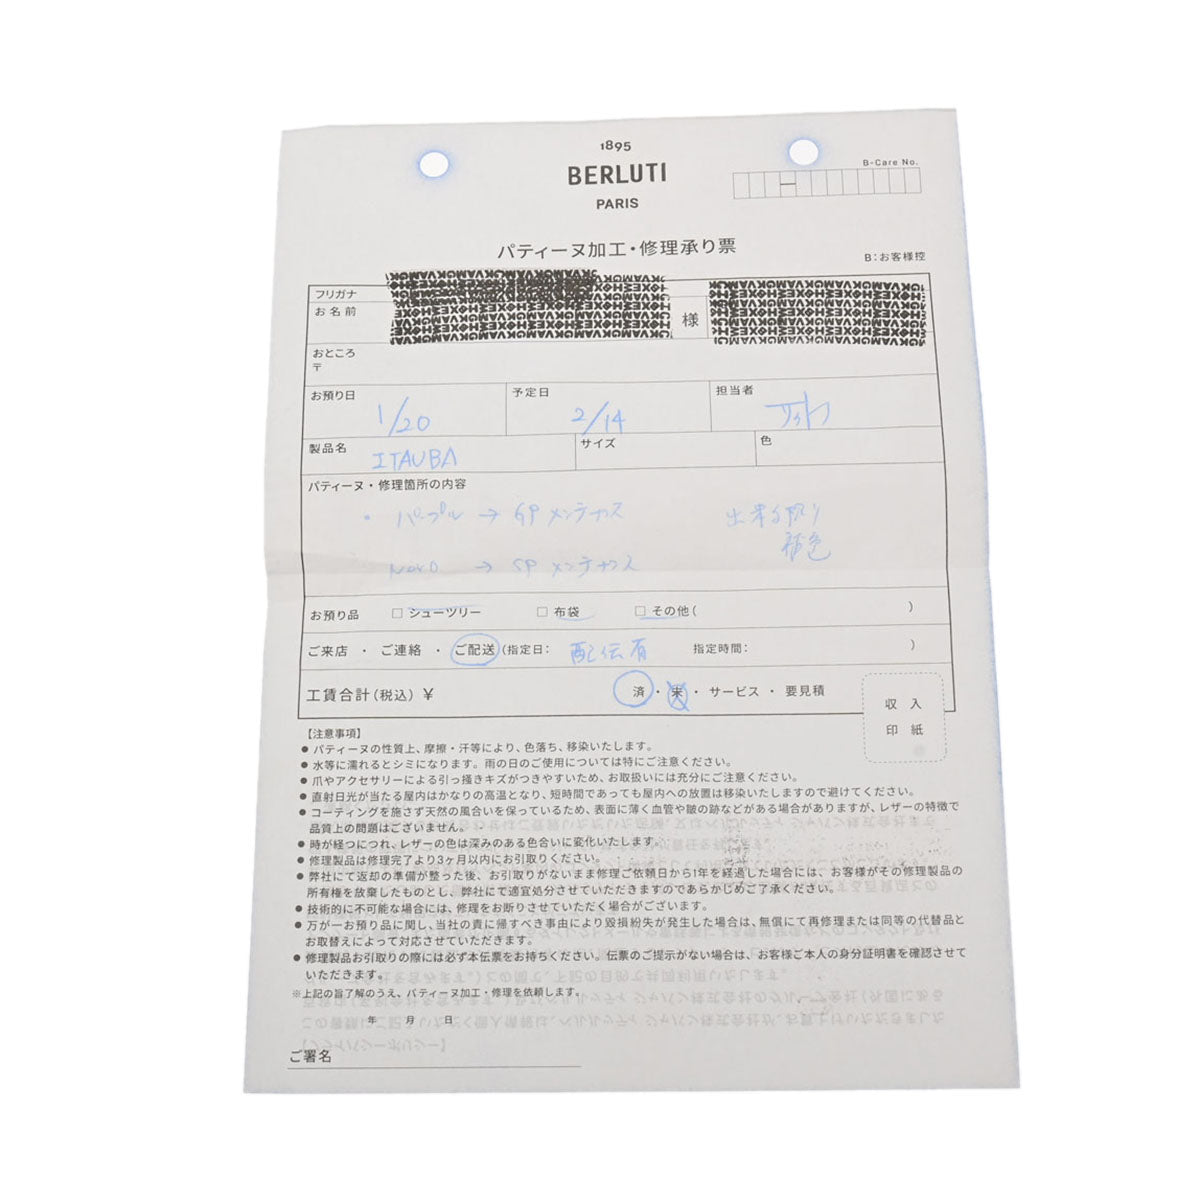 1895
BERLUTI
PARIS
B-Care No.
パティーヌ加工・修理承り票
B：お客様控
フリガナ
お名前
様
おところ
〒
お預り日 1/20
予定日 2/14
担当者
製品名 ITAUBA
サイズ
色
パティーヌ・修理箇所の内容
・パープル → GPメンテナンス
出来る限り
補色
→ GPメンテナンス
お預り品 □ シューツリー □ 布袋 □ その他( )
ご来店 ・ ご連絡 ・ ご配送 (指定日： 配伝有 指定時間： )
工賃合計(税込) ¥ 済・未・サービス・要見積
収入
印紙
【注意事項】
● パティーヌの性質上、摩擦・汗等により、色落ち、移染いたします。
● 水等に濡れるとシミになります。雨の日のご使用については特にご注意ください。
● 爪やアクセサリーによる引っ掻きキズがつきやすいため、お取扱いには充分にご注意ください。
● 直射日光が当たる屋内はかなりの高温となり、短時間であっても屋内への放置は移染いたしますので避けてください。
● コーティングを施さず天然の風合いを保っているため、表面に薄く血管や皺の跡などがある場合がありますが、レザーの特徴で
品質上の問題はございません。
● 時が経つにつれ、レザーの色は深みのある色合いに変化いたします。
● 修理製品は修理完了より3ヶ月以内にお引取りください。
● 弊社にて返却の準備が整った後、お引取りがないまま修理ご依頼日から1年を経過した場合には、お客様がその修理製品の
所有権を放棄したものとし、弊社にて適宜処分させていただきますのであらかじめご了承ください。
● 技術的に不可能な場合には、修理をお断りさせていただく場合がございます。
● 万が一お預り品に関し、当社の責に帰すべき事由により毀損紛失が発生した場合は、無償にて再修理または同等の代替品と
お取替えによって対応させていただきます。
● 修理製品お引取りの際には必ず本伝票をお持ちください。伝票のご提示がない場合は、お客様ご本人の身分証明書を確認させて
いただきます。
※上記の旨了解のうえ、パティーヌ加工・修理を依頼します。
年 月 日
ご署名